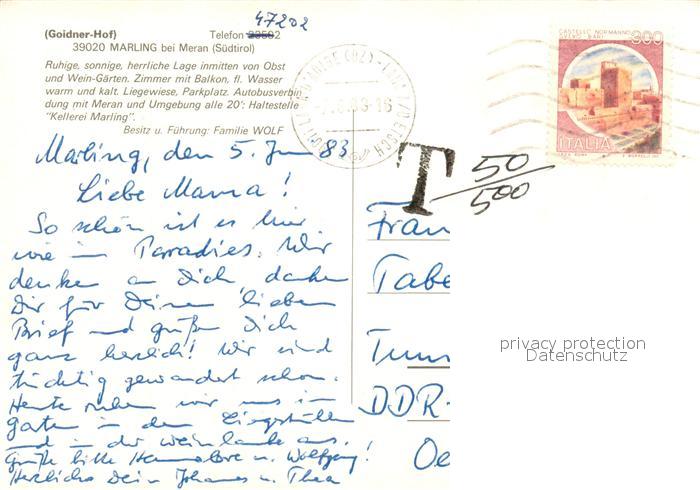 47202
(Goidner-Hof) Telefon
39020 MARLING bei Meran (Südtirol)
Ruhige, sonnige, herrliche Lage inmitten von Obst
und Wein-Gärten. Zimmer mit Balkon, fl. Wasser
warm und kalt. Liegewiese, Parkplatz. Autobusverbin
dung mit Meran und Umgebung alle 20': Haltestelle
"Kellerei Marling".
Besitz u. Führung: Familie WOLF
CASTELLO NORMANNO
SVEVO - BARI
300
ITALIA
T 50/500
Marling, den 5. Juni 83
Liebe Mama!
So schön ist es hier
wie im Parradies. Wir
denken an Dich, danken
Dir für Deinen lieben
Brief und grüßen Dich
ganz herzlich! Wir sind
tüchtig gewandert schon.
Heute ruhen wir uns im
Garten in den Liegestühlen
und in der Weinlaube aus.
Grüße bitte Hannelore u. Wolfgang!
Herzlichst Dein Johannes u. Thea
Frau
Tabe
DDR-
Oe
privacy protection
Datenschutz